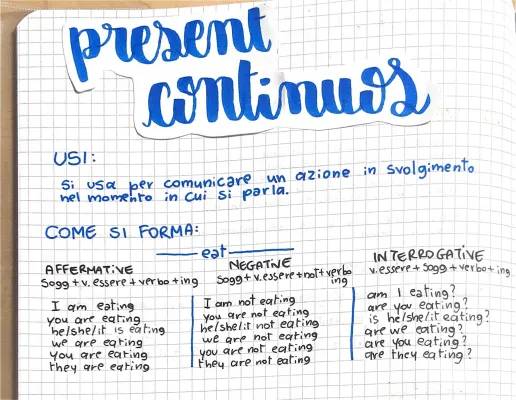 present
continuos
USI:
Si usa per comunicare un azione in svolgimento
nel momento in cui si parla.
COME SI FORMA:
eat
AFFERMATIVE
Sogg + v. essere + verbo + ing
I am eating
you are eating
he/she/it is eating
we are eating
You are eating
they are eating
NEGATIVE
Sogg + v. essere + not + verbo
ing
I am not eating
you are not eating
he/she/it not eating
we are not eating
you are not eating
they are not eating
INTERROGATIVE
v. essere + Sogg + verbo + ing
am I eating?
are you eating?
is he/she/it eating?
are we eating?
are you eating?
are they eating?